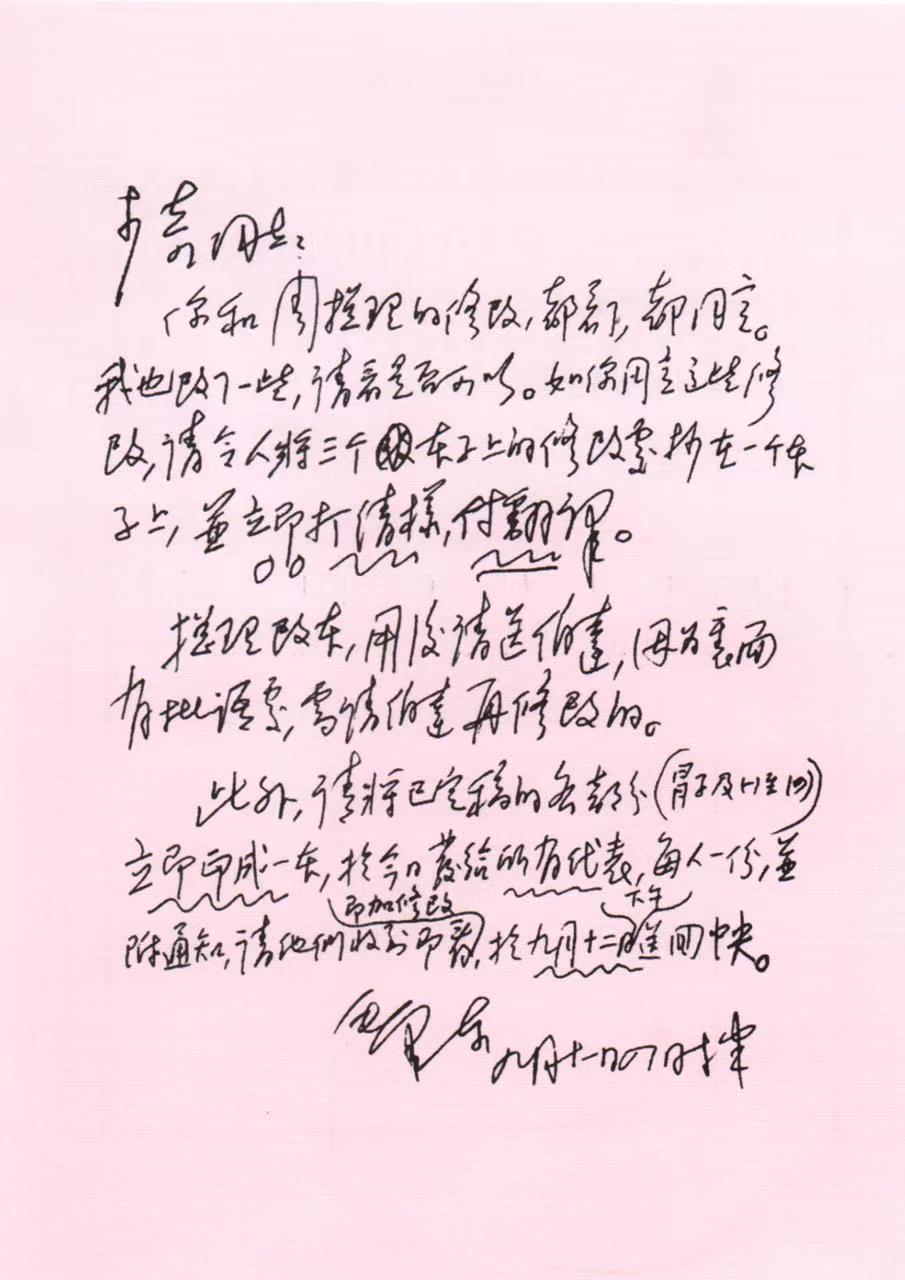 少奇同志：
你和周总理的修改，都看了，都同意。
我也改了一些，请看是否可以。如你同意这些修
改，请令人将三个本子上的修改处抄在一个本
子上，並立即打清樣，付翻译。
总理改本，用後请送伯達，因为裏面
有批语处，需请伯達再修改的。
此外，请将已定稿的各部分（
立即印成一本，於今日發给所有代表，每人一份，並
即加修改 下午
附通知，请他们收到即看，於九月十二日退回中央。
毛泽东 九月十一日 时半